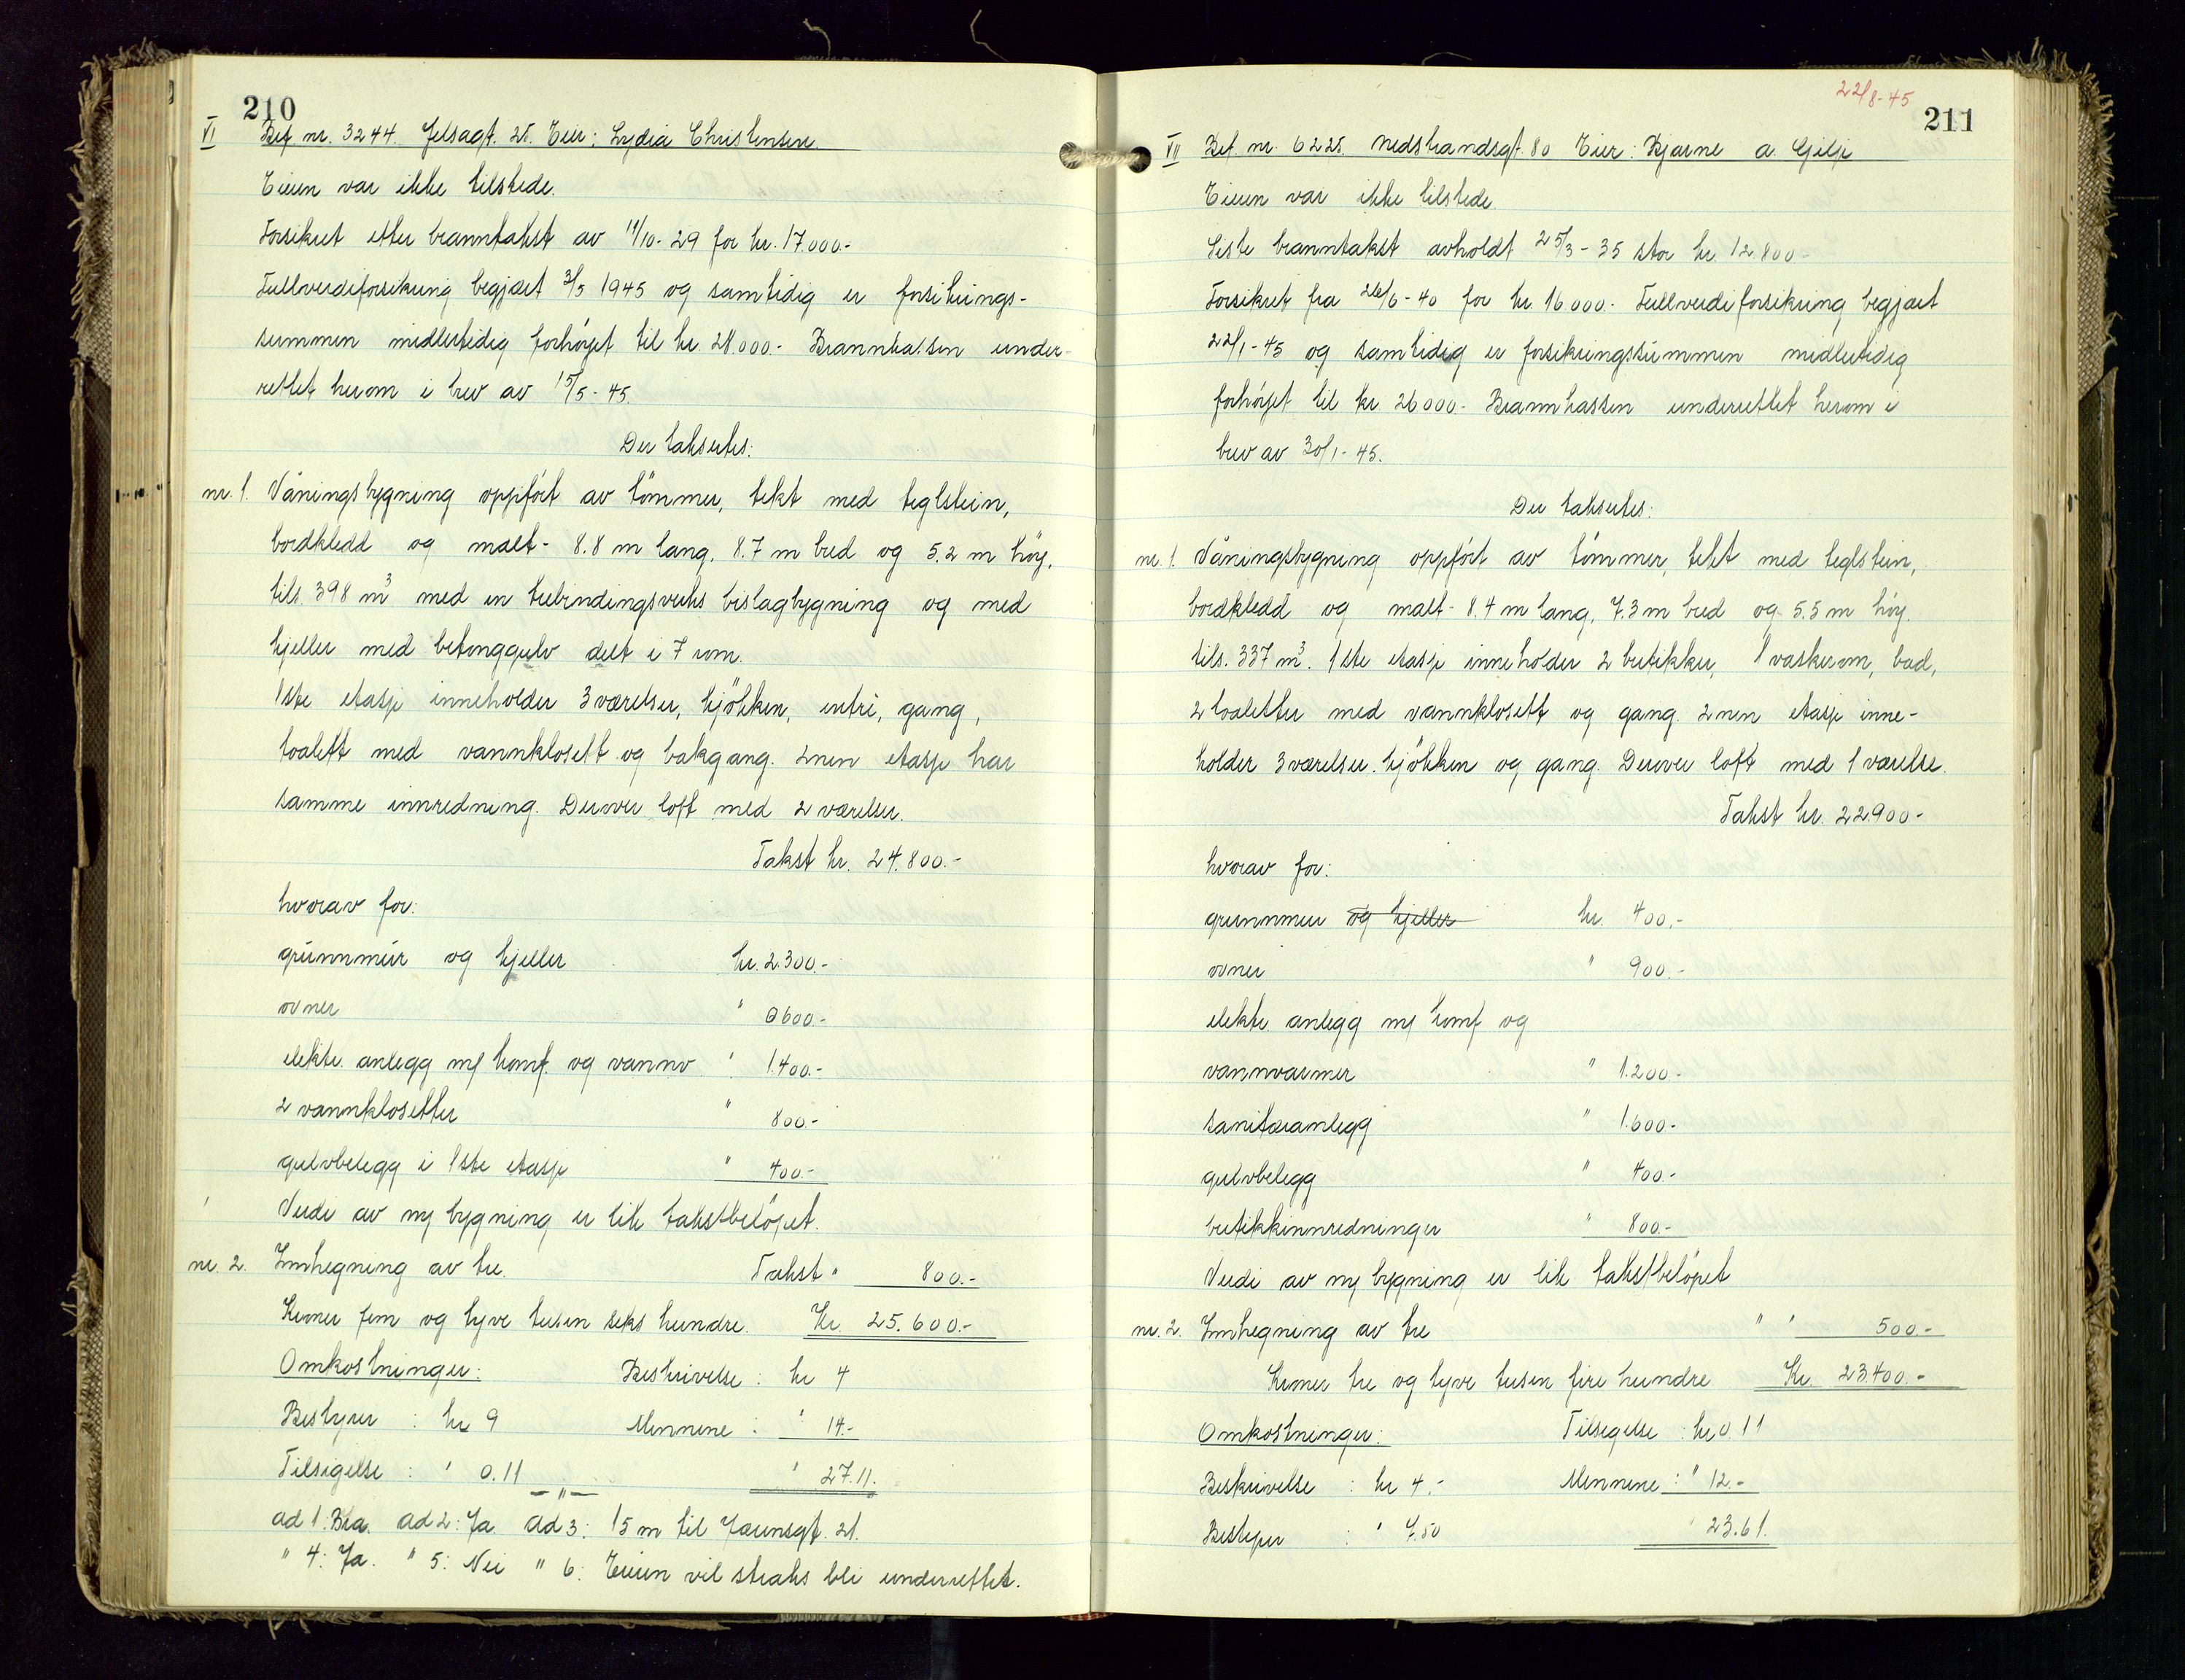 210
VI Bef. nr. 3244. Jelsagt. 25. Eier: Lydia Christensen
Eieren var ikke tilstede.
Forsikret etter branntakst av 11/10-29 for kr. 17.000.-
Fullverdiforsikring begjært 3/5 1945 og samtidig er forsikrings-
summen midlertidig forhöyet til kr. 28.000.- Brannkassen under-
rettet herom i brev av 15/5-45.
Der takseres:
nr. 1. Våningsbygning oppfört av tömmer, tekt med teglstein,
bordkledd og malt - 8.8 m lang, 8.7 m bred og 5.2 m höy,
tils. 398 m3 med en trebindingsverks bislagbygning og med
kjeller med betonggulv delt i 7 rom.
1ste etasje inneholder 3 værelser, kjökken, entré, gang,
toalett med vannklosett og bakgang. 2nen etasje har
samme innredning. Derover loft med 2 værelser.
Takst kr. 24.800.-
hvorav for:
grunnmur og kjeller kr. 2.300.-
ovner " 600.-
elektr. anlegg m/ komf. og vannv " 1.400.-
2 vannklosetter " 800.-
gulvbelegg i 1ste etasje " 400.-
Verdi av ny bygning er lik takstbelöpet.
nr. 2. Innhegning av tre. Takst " 800.-
Kroner fem og tyve tusen seks hundre. Kr. 25.600.-
Omkostninger: Beskrivelse : kr 4
Bestyrer : kr 9 Mennene : " 14.-
Tilsigelse : " 0.11 " 27.11.
— " —
ad 1: Bra. ad 2: Ja ad 3: 15 m til 21.
" 4: Ja. " 5: Nei " 6: Eieren vil straks bli underrettet.
22/8-45
211
VII Bef. nr. 6225. Nedstrandsgt. 80 Eier: Bjarne A. Gilje
Eieren var ikke tilstede.
Siste branntakst avholdt 25/3-35 stor kr. 12.800-
Forsikret fra 26/6-40 for kr 16000.- Fullverdiforsikring begjært
22/1-45 og samtidig er forsikringssummen midlertidig
forhöyet til kr 26000.- Brannkassen underrettet herom i
brev av 30/1-45.
Der takseres:
nr. 1. Våningsbygning oppfört av tömmer, tekt med teglstein,
bordkledd og malt - 8.4 m lang, 7.3 m bred og 5.5 m höy.
tils. 337 m3. 1ste etasje inneholder 2 butikker, 1 vaskerom, bad,
2 toaletter med vannklosett og gang. 2nen etasje inne-
holder 3 værelser, kjökken og gang. Derover loft med 1 værelse.
Takst kr. 22.900-
hvorav for:
grunnmur og kjeller kr. 400.-
ovner " 900.-
elektr. anlegg m/ komf og
vannvarmer " 1.200.-
sanitæranlegg " 1.600-
gulvbelegg " 400.-
butikkinnredninger " 800.-
Verdi av ny bygning er lik takstbelöpet
nr. 2. Innhegning av tre " " 500.-
Kroner tre og tyve tusen fire hundre Kr. 23.400.-
Omkostninger: Tilsigelse : kr 0 11
Beskrivelse : kr 4.- Mennene : " 12.-
Bestyrer : " 7.50 " 23.61.